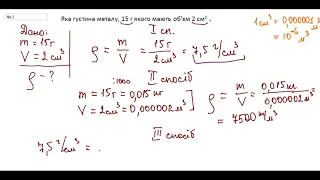 №1
Яка густина металу, 15 г якого мають об'єм 2 см³.
1см³ = 0,000001 м³
= 10⁻⁶ м³
Дано:
m = 15г
V = 2см³
ρ - ?
I сп.
ρ = m/V = 15г/2см³ = 7,5 г/см³
II спосіб
:1000
m = 15г = 0,015кг
V = 2см³ = 0,000002м³
ρ = m/V = 0,015кг/0,000002м³ =
= 7500 кг/м³
III спосіб
7,5 г/см³ =